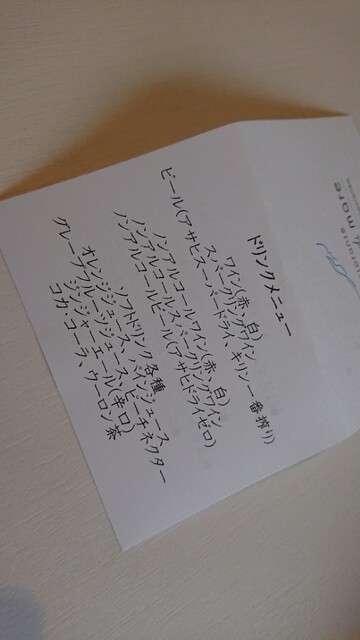 ristorante
more
ドリンクメニュー
ワイン(赤、白)
スパークリングワイン
ビール(アサヒスーパードライ、キリン一番搾り)
ノンアルコールワイン(赤、白)
ノンアルコールスパークリングワイン
ノンアルコールビール(アサヒドライゼロ)
ソフトドリンク各種
オレンジジュース、パインジュース
グレープフルーツジュース、ピーチネクター
ジンジャーエール(辛口)
コカ・コーラ、ウーロン茶